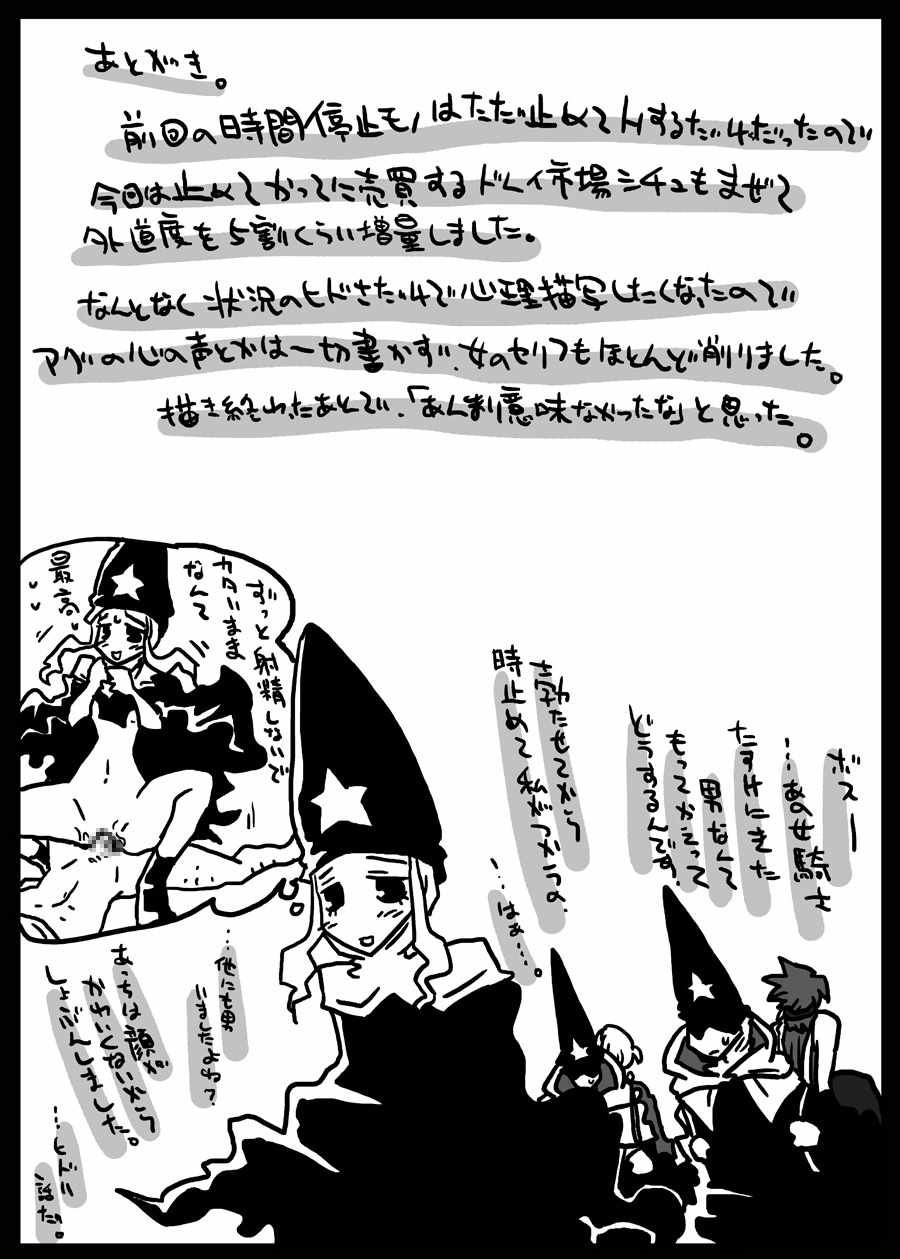 あとがき。
前回の時間停止モノはただ止めてHするだけだったので
今回は止めてかってに売買するドレイ市場シチュもまぜて
外道度を5割くらい増量しました。
なんとなく状況のヒドさだけで心理描写したくなったので
アゲハの心の声とかは一切書かず、女のセリフもほとんど削りました。
描き終わったあとで、「あんま意味なかったな」と思った。
ボスー
…あの女騎士
たすけにきた
男なんて
もってかえって
どうするんです。
勃たせてから
時止めて私がつかうの。
…はぁ…。
ずっと射精しないで
カタいまま
なんて
最高
…他にも男
いましたよね?
あっちは顔が
かわいくないから
しょぶんしました。
…ヒドい
話だ。